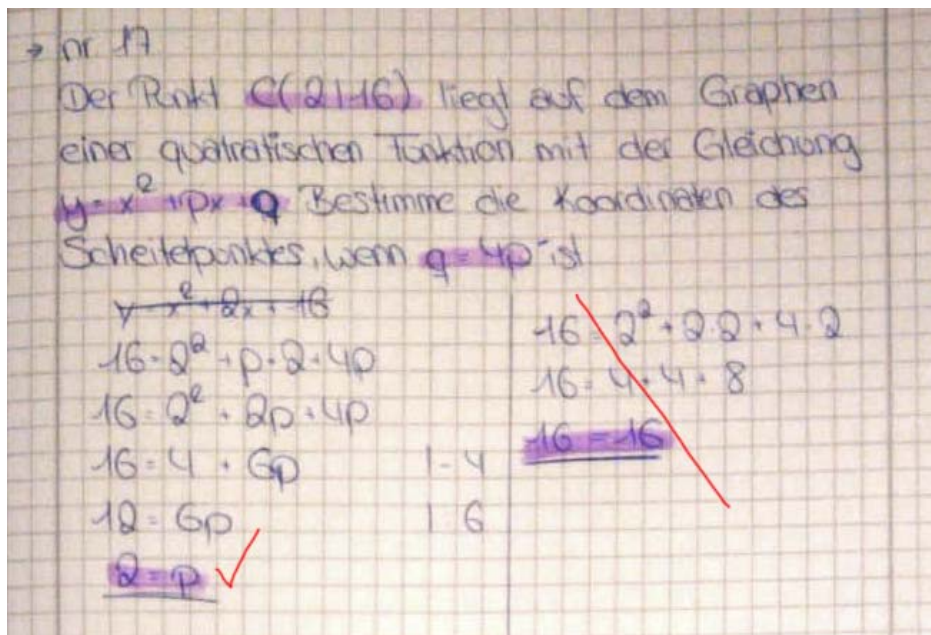 → nr 17
Der Punkt C(2|16) liegt auf dem Graphen
einer quatratischen Funktion mit der Gleichung
y = x² + px + q Bestimme die Koordinaten des
Scheitelpunktes, wenn q = 4p ist
y = x² + 2x + 16
16 = 2² + p · 2 + 4p
16 = 2² + 2p + 4p
16 = 4 + 6p | - 4
12 = 6p | : 6
2 = p
16 = 2² + 2 · 2 + 4 · 2
16 = 4 + 4 + 8
16 = 16